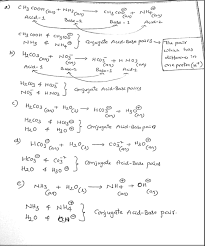 a) CH3COOH(aq) + NH3(aq) → CH3COO⊖(aq) + NH4⊕(aq)
Acid-1 Base-2 Base-1 Acid-2
CH3COOH & CH3COO⊖
NH3 & NH4⊕
Conjugate Acid-Base pairs
The pair
which has
difference in
one proton (H⊕)
b)
Acid-1 Base-2 Base-1
Conjugate Acid-Base pairs
c) H2CO3(aq) + H2O(l) → HCO3⊖(aq) + H3O⊕(aq)
H2CO3 & HCO3⊖
H2O & H3O⊕
Conjugate Acid-Base pairs
d) HCO3⊖(aq) + H2O(l) → CO3²⊖(aq) + H3O⊕(aq)
HCO3⊖ & CO3²⊖
H2O & H3O⊕
Conjugate Acid-Base pairs
e) NH3(aq) + H2O(l) → NH4⊕(aq) + OH⊖(aq)
NH3 & NH4⊕
H2O & OH⊖
Conjugate Acid-Base pairs